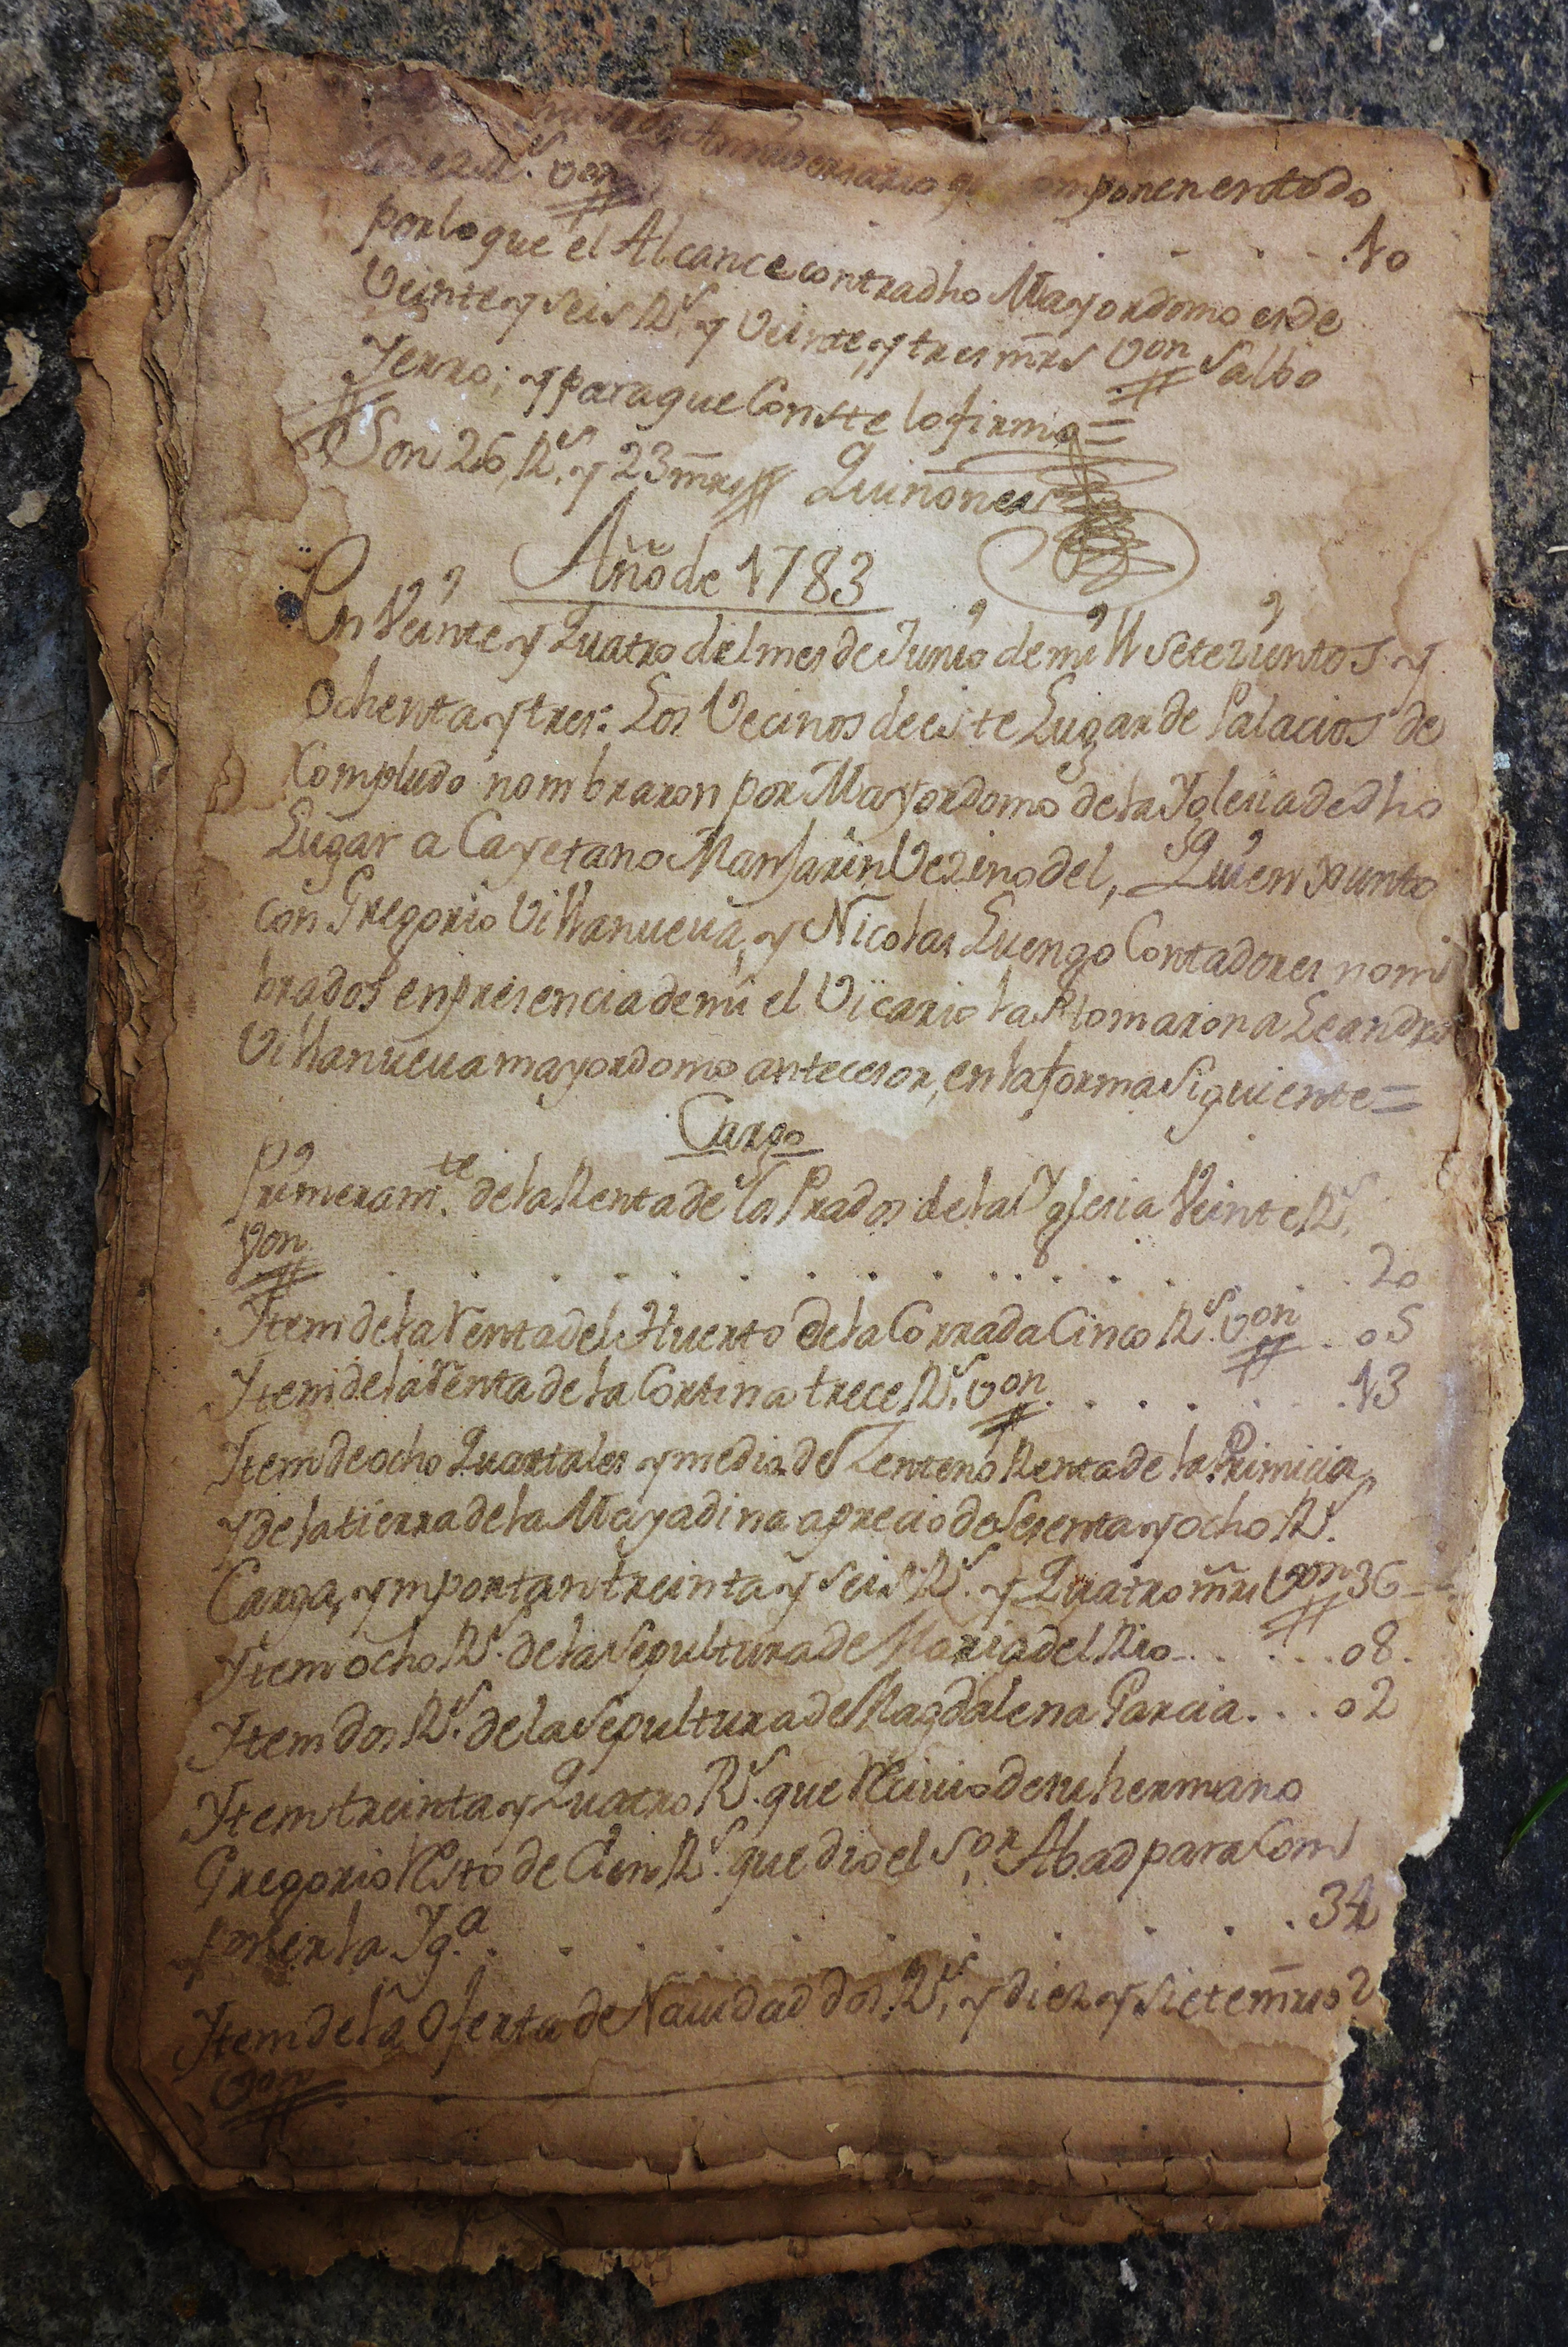 Anniversario que componen entodo
Diez Rs. von
. . . 10
porloque el Alcance contradho Mayordomo esde
Veinte y seis Rs. y Veinte, y tres mrs von salbo
Yerro; y paraque Conste lofirmo=
Son 26 Rs. y 23 mrs Quiñones
Año de 1783
En Veinte y Quatro del mes de Junio de mil setezientos y
Ochenta y tres: Los Vecinos de este Lugar de Palacios de
Compludo nombraron por Mayordomo dela Yglesia de dho
Lugar a Cayetano Manjarin Vezino del, Quien junto
con Gregorio Villanueva, y Nicolas Luengo Contadores nom
brados enpresencia demi el Vicario la tomaron a Leandro
Villanueva mayordomo antecesor, en la forma siguiente=
Cargo
Primeramte. dela Renta de los Prados dela Yglesia Veinte Rs.
von . . . . . . . . . . . . . 20
Ytem dela renta del Huerto dela Corrada Cinco Rs. von . . 05
Ytem dela renta de la Cortina trece Rs. von . . . . . . 13
Ytem de ocho Quartales y medio de Zenteno Renta de la Primicia,
y dela tierra dela Mayadina aprecio de sesenta y ocho Rs.
Carga, ymportan treinta y seis Rs. y Quatro mrs von 36
Ytem ocho Rs. dela sepultura de Maria del Rio . . . . . 08.
Ytem dos Rs. dela sepultura de Magdalena Garcia . . . 02
Ytem treinta y Quatro Rs. que Recivio de su hermano
Gregorio Resto de Cien Rs. que dio el Sor. Abad para Com
poner la Yga. . . . . . . . . . . 34
Ytem dela Oferta de Navidad dos Rs, y diez y siete mrs 02
von